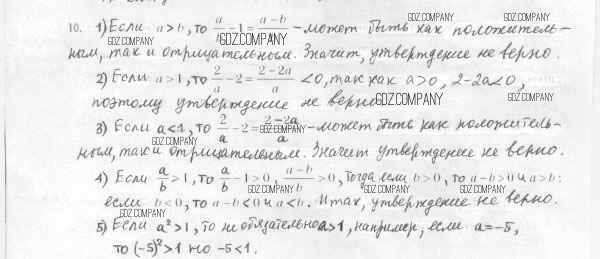 10. 1) Если a > b, то a/b - 1 = (a-b)/b - может быть как положитель-
ным, так и отрицательным. Значит, утверждение не верно.
2) Если a > 1, то 2/a - 2 = (2-2a)/a < 0, так как a > 0, 2-2a < 0,
поэтому утверждение не верно
3) Если a < 1, то 2/a - 2 = (2-2a)/a - может быть как положитель-
ным, так и отрицательным. Значит утверждение не верно.
4) Если a/b > 1, то a/b - 1 > 0, (a-b)/b > 0, Тогда если b > 0, то a-b > 0 и a > b;
если b < 0, то a-b < 0 и a < b. Итак, утверждение не верно.
5) Если a² > 1, то не обязательно a > 1, например, если a = -5,
то (-5)² > 1 но -5 < 1.
GDZ.COMPANY
GDZ.COMPANY
GDZ.COMPANY
GDZ.COMPANY
GDZ.COMPANY
GDZ.COMPANY
GDZ.COMPANY
GDZ.COMPANY
GDZ.COMPANY
GDZ.COMPANY